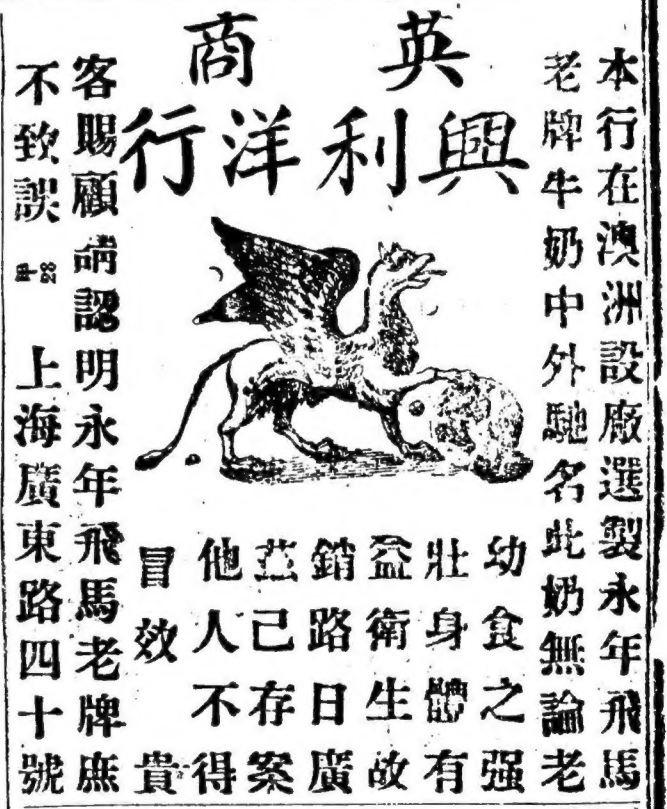 英商
興利洋行
本行在澳洲設廠選製永年飛馬
老牌牛奶中外馳名此奶無論老
幼食之强
壯身體有
益衛生故
銷路日廣
茲已存案
他人不得
冒效 貴
客賜顧請認明永年飛馬老牌庶
不致誤 上海廣東路四十號